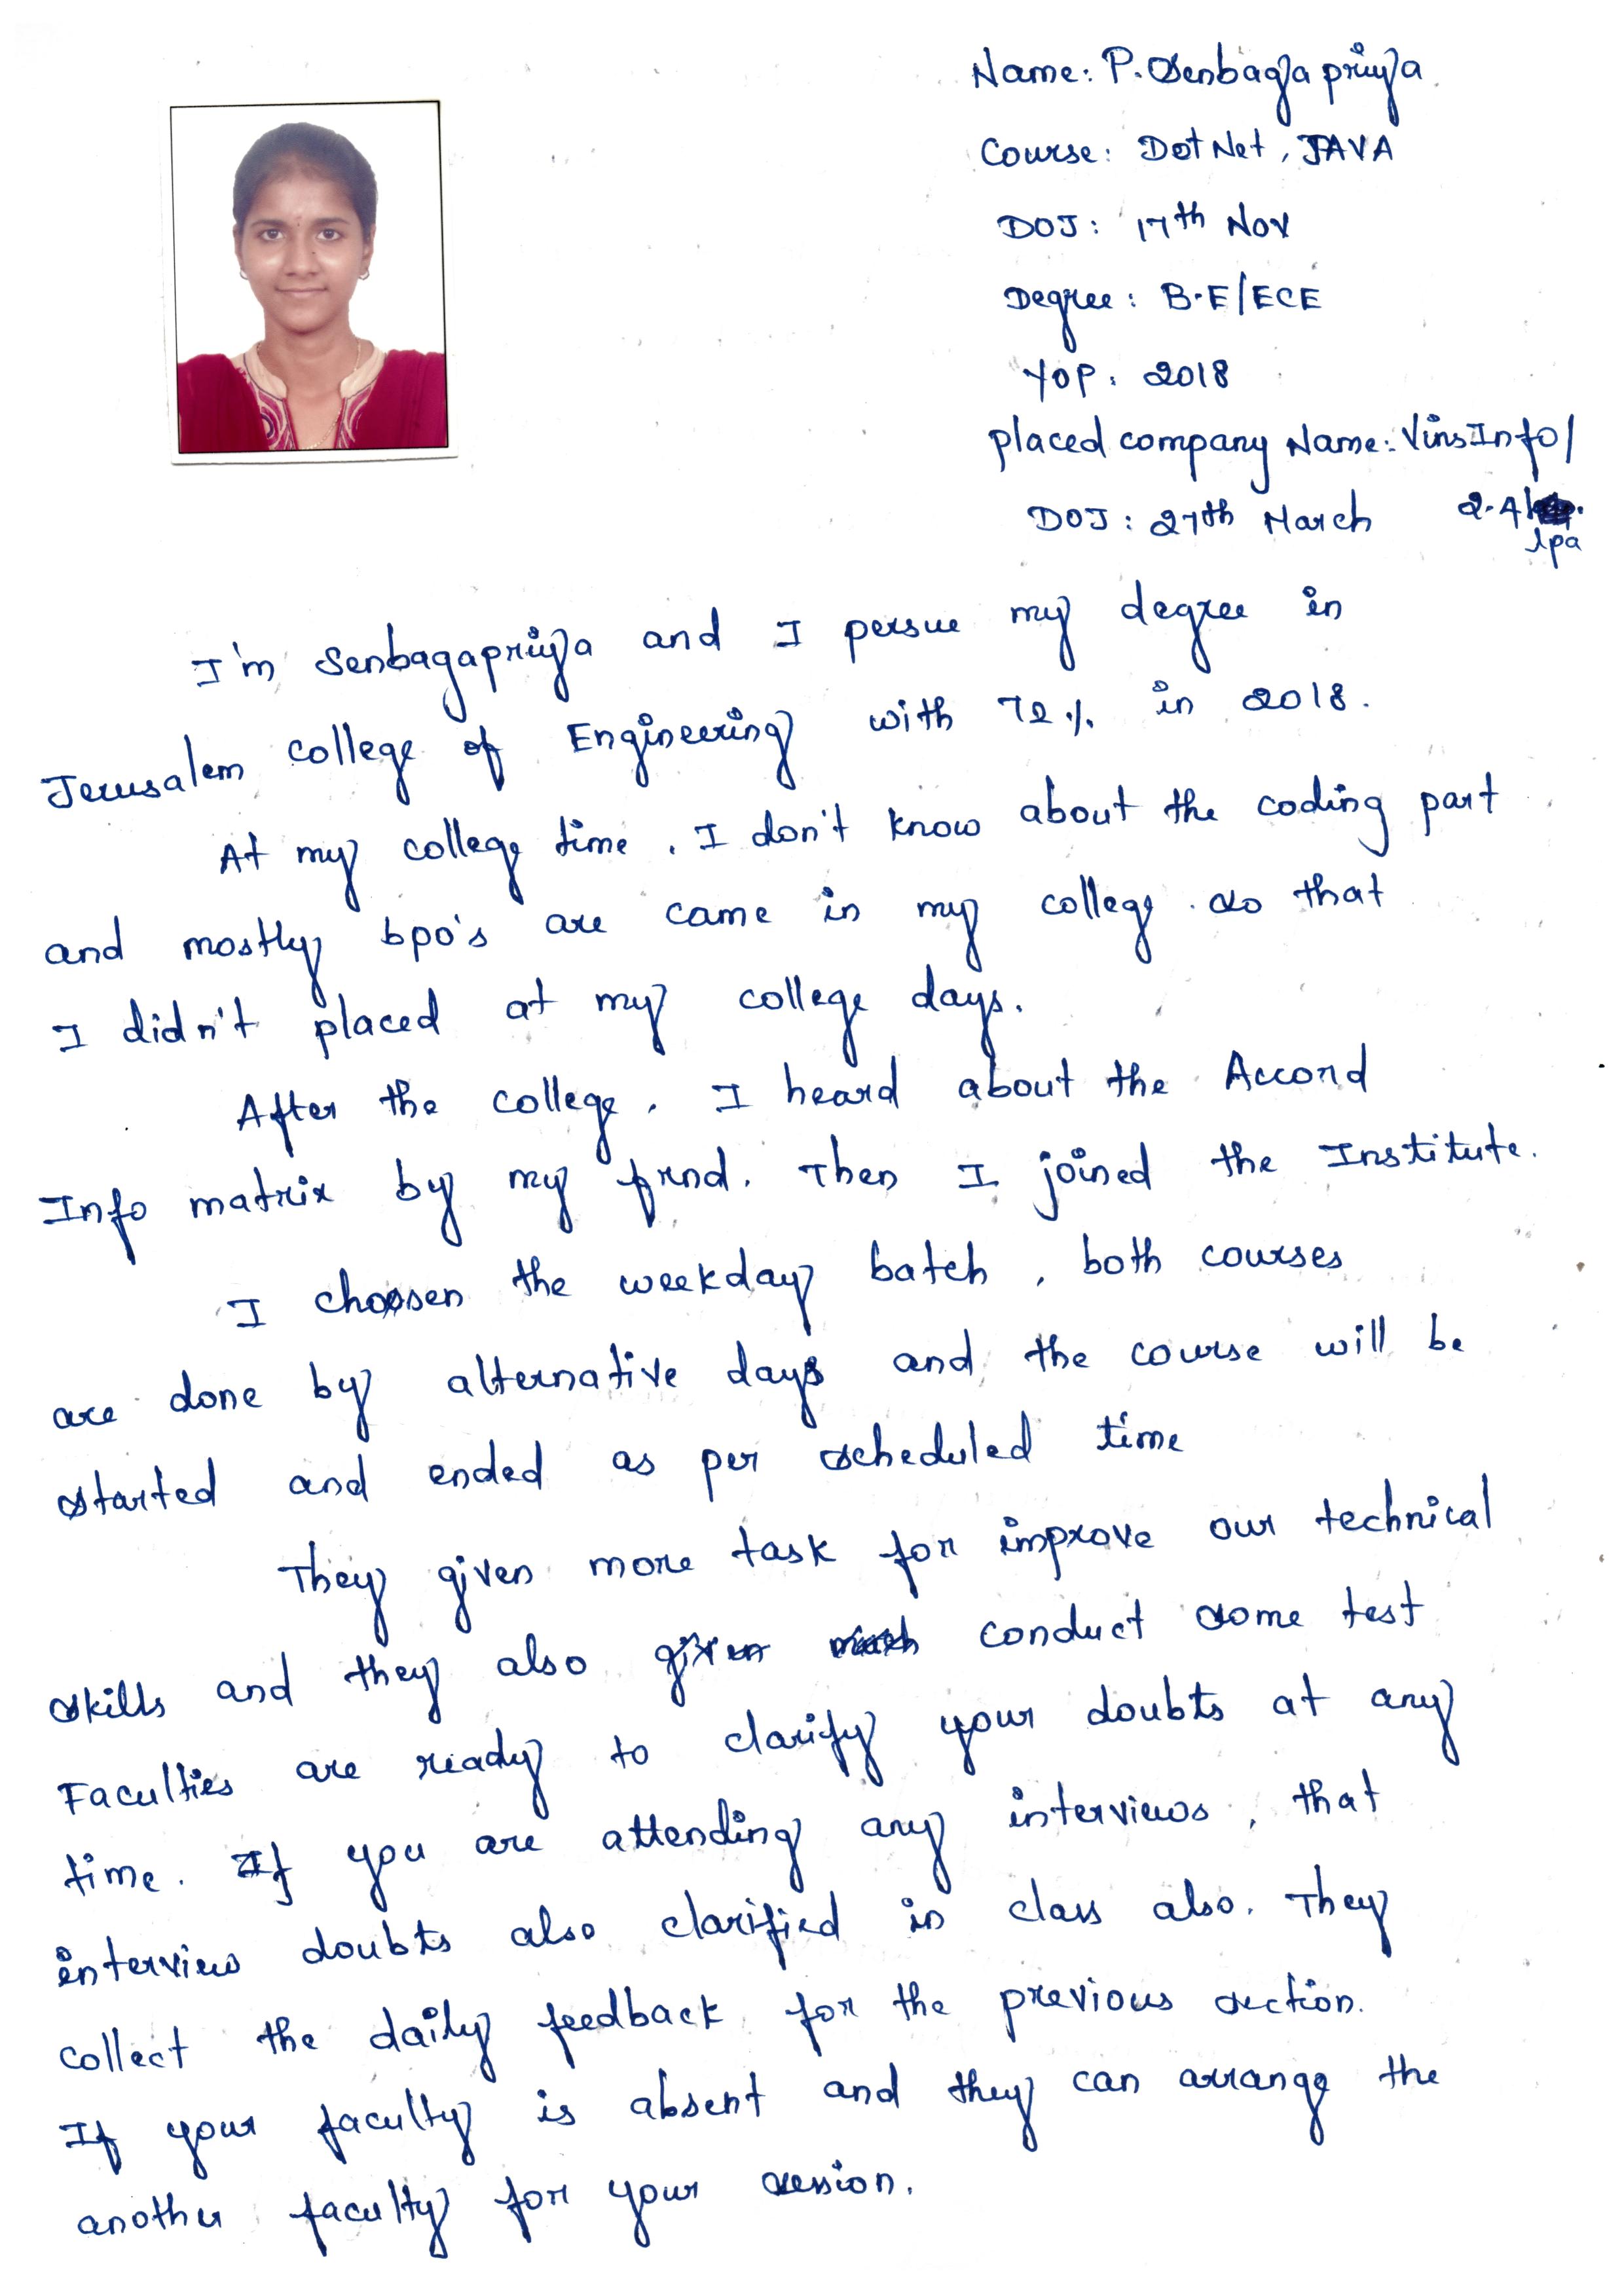 Name: P. Senbagapriya
Course: DotNet, JAVA
DOJ: 17th Nov
Degree: B.E/ECE
YOP: 2018
placed company Name: VinsInfo/
DOJ: 27th March 2.4
lpa
I'm Senbagapriya and I persue my degree in
Jerusalem college of Engineering with 72% in 2018.
At my college time, I don't know about the coding part
and mostly bpo's are came in my college. so that
I didn't placed at my college days.
After the college, I heard about the Accord
Info matrix by my frnd. Then I joined the Institute.
I choosen the weekday batch, both courses
are done by alternative days and the course will be
started and ended as per scheduled time
They given more task for improve our technical
skills and they also given conduct some test
Faculties are ready to clarify your doubts at any
time. If you are attending any interviews, that
interview doubts also clarified in class also. They
collect the daily feedback for the previous section.
If your faculty is absent and they can arrange the
another faculty for your session.